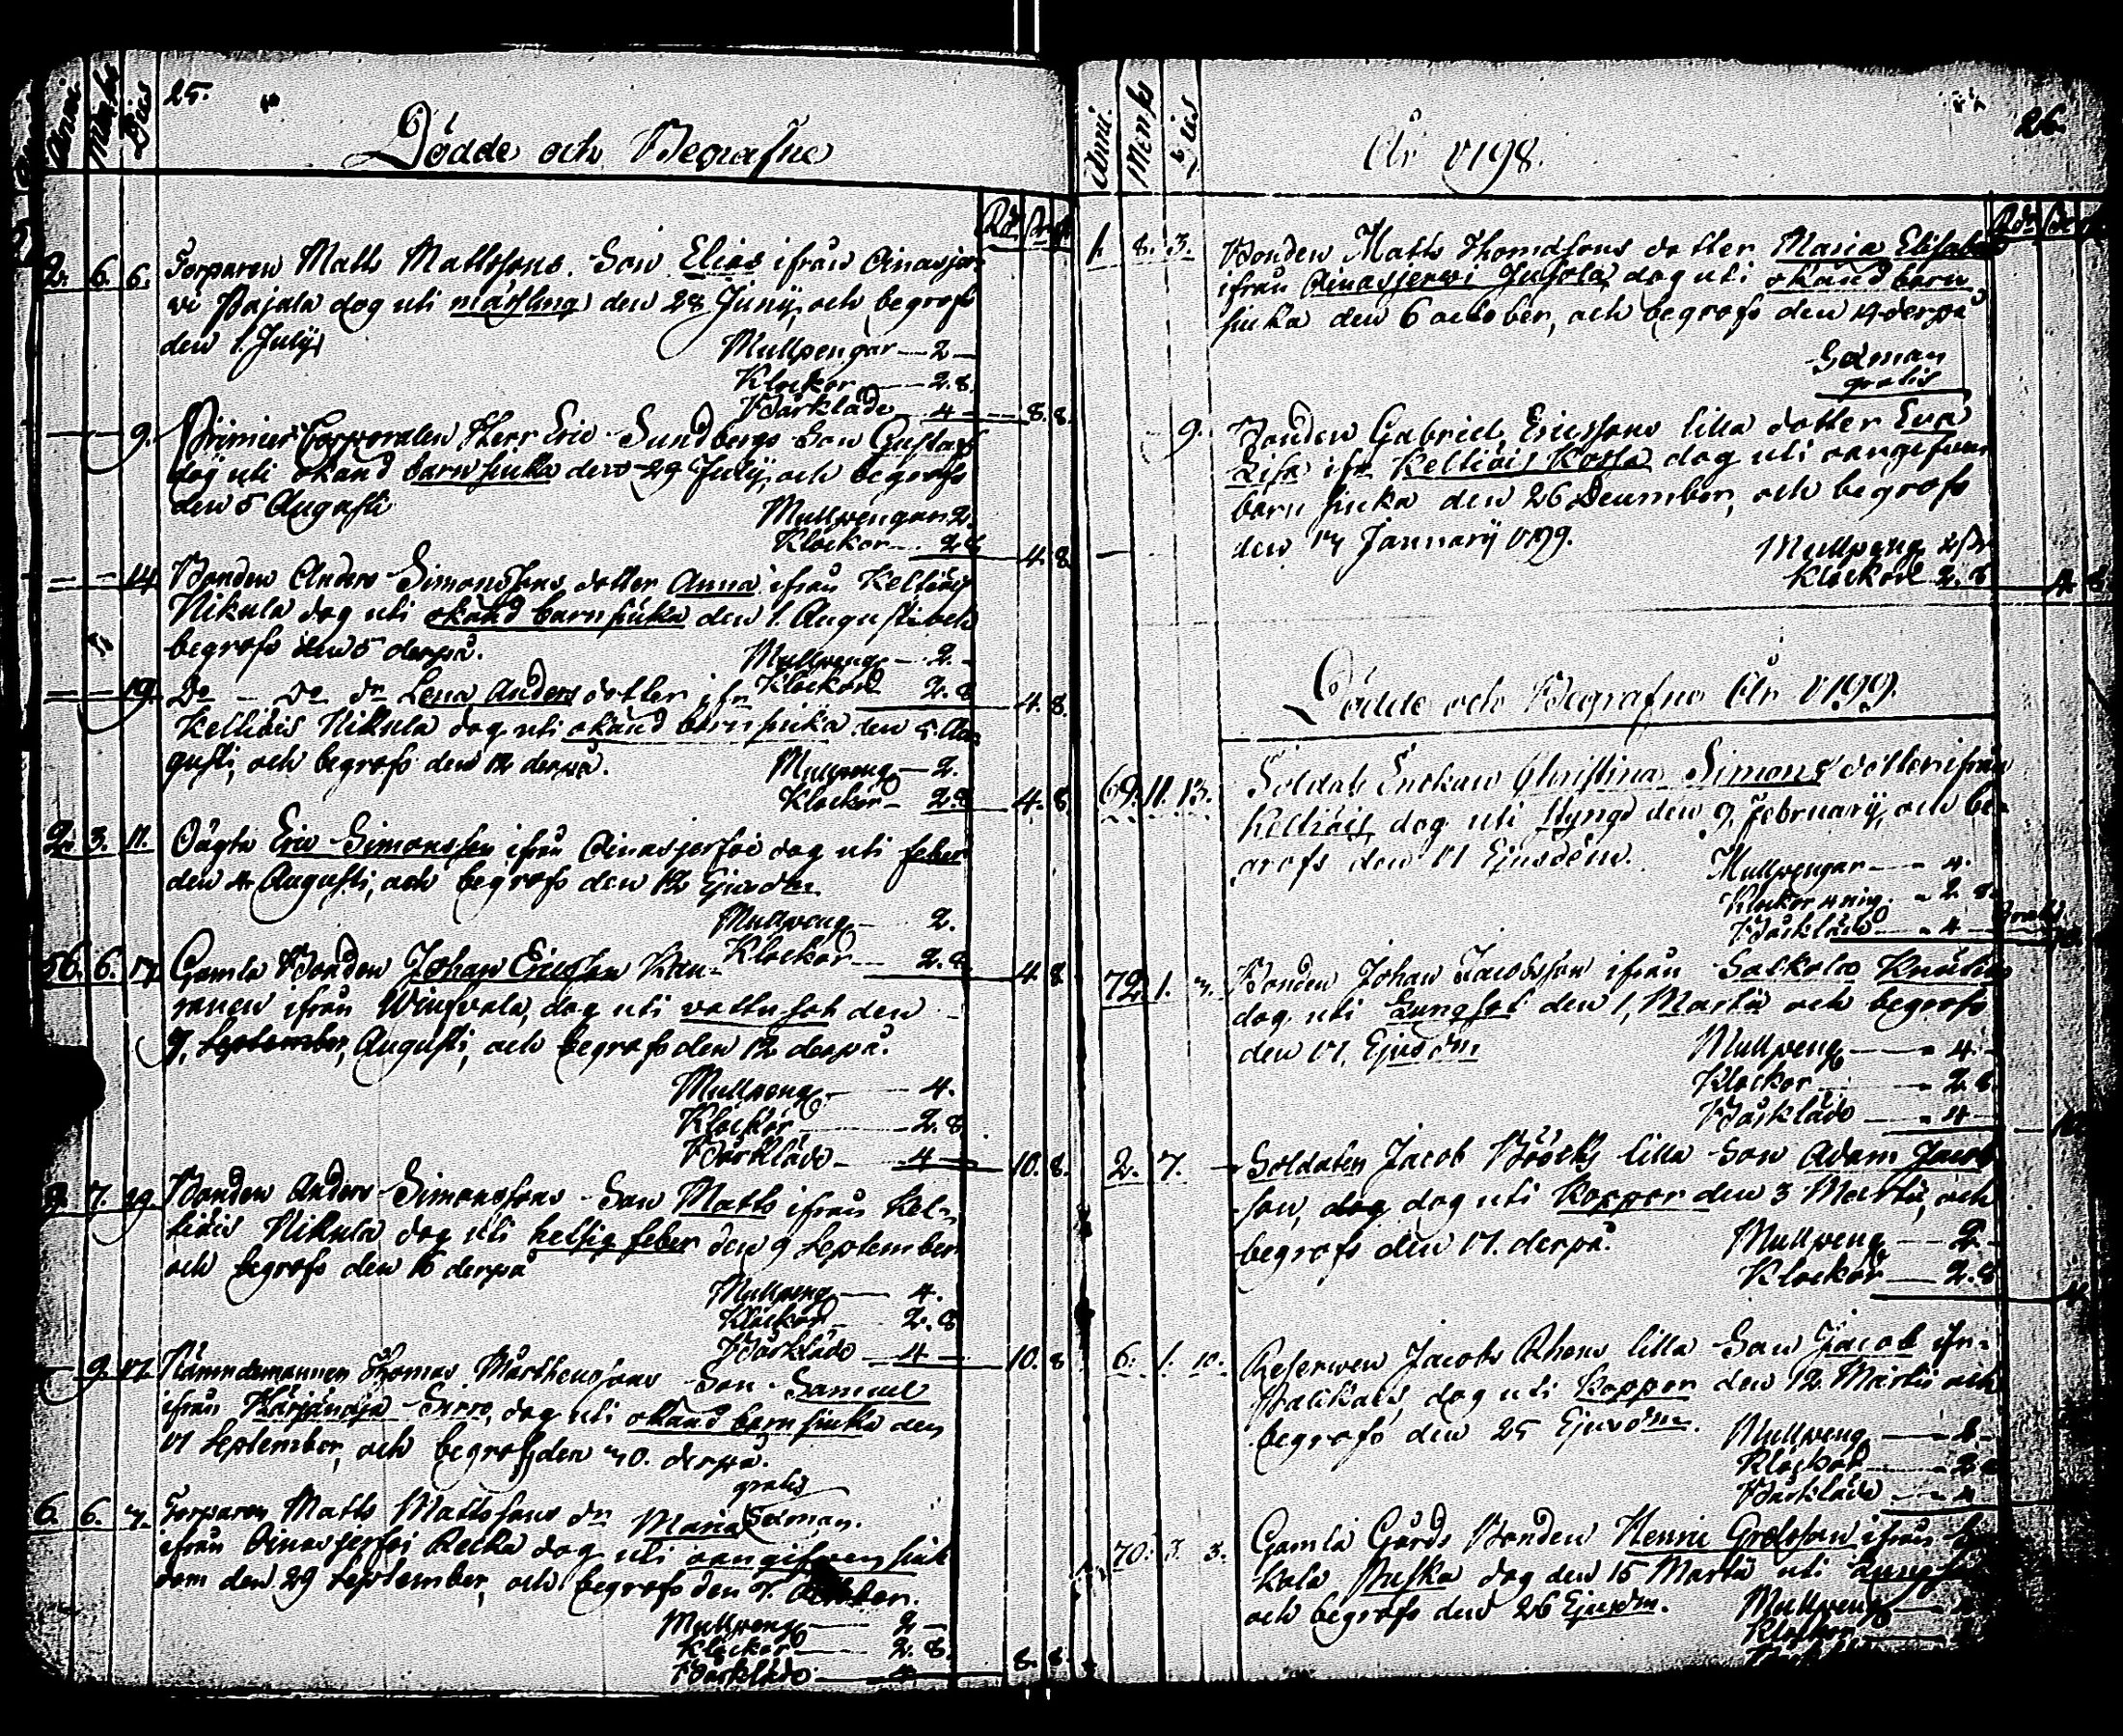 Anni.
Menses
Dies
25.
Dödde och Begrafne
Rd. sk. r.
2. 6. 6. Torparen Matts Mattssons Son Elias ifrån Ainasjer-
vi Pajala dog uti mässling den 28 Junii, och begrofs
den 1. July
Mullpengar — 2 —
Klockor — 2.8.
Bårkläde — 4 — 8. 8.
— 9. Corporalen Herr Eric Sundbergs Son Gustaf
dog uti okänd barnsiuka den 29 July, och begrofs
den 5 Augusti
Mullpengar 2.
Klockor — 2.8 4. 8.
— — 14 Bonden Anders Simonssons dotter Anna ifrån Keltiäis
Nikula dog uti okänd barnsiuka den 1. Augusti och
begrofs den 5 derpå.
Mullpeng — 2. —
Klockor 2.8 4. 8.
— — 19. Do — Do dr Lena Anders dotter ifr
Keltiäis Nikula dog uti okänd barnsiuka den 5 Au-
gusti, och begrofs den 12 derpå.
Mullpeng — 2.
Klockor — 2.8 4. 8
2. 3. 11. Eric Simonsson ifrån Ainasjerfvi dog uti feber
den 4 Augusti, och begrofs den 12 Ejusdm
Mullpeng — 2.
Klockor — 2.8 4. 8
56. 6. 17 Gamla Bonden Johan Ericsson
ifrån dog uti vattusot den
9. September, Augusti, och begrofs den 12 derpå.
Mullpeng — 4.
Klockor — 2.8
Bårkläde — 4 — 10. 8.
9. 7. 29. Bonden Anders Simonssons Son Matts ifrån Kel-
tiäis Nikula dog uti hetsig feber den 9 September
och begrofs den 16 derpå
Mullpeng — 4.
Klockor — 2.8
Bårkläde — 4 — 10. 8
— 9. 17. Nämndemannen Thomas Mårthenssons Son Samuel
ifrån Sirro, dog uti okänd barnsiuka den
17 September, och begrofs den 30. derpå.
gratis
6. 6. 7. Torparen Matts Mattssons dr Maria
ifrån Ainasjerfvi dog uti oangifven siuk-
dom den 29 September, och begrofs den 7. October.
Mullpeng — 2 —
Klockor — 2. 8.
Bårkläde — 4 8. 8.
Anni.
Menses
Dies
26.
År 1798.
Rdr sk
1. 8. 3. Bonden Matts Thomassons dotter Maria Elisabet
ifrån Ainasjerwi Juhola dog uti okänd barn
siuka den 6 october, och begrofs den 14 derpå
gratis
9. Bonden Gabriel Ericssons lilla dotter Eva
Lisa ifr Keltiäis Kossa dog uti oangifven
barnsiuka den 26 December, och begrofs
den 17 Januarij 1799.
Mullpeng 2 sk
Klockor 2. 8 4. 8
Dödde och Begrafne År 1799.
69. 11. 13. Soldats Enckan Christina Simons dotter ifrån
Keltiäis, dog uti styng den 9. februarij, och be-
grofs den 17 Ejusdem.
Mullpengar — 4.
Klockor — 2 8.
Bårkläde — 4
72. 1. 3. Bonden Johan Jacobsson ifrån
dog uti Lungsot den 1, Martii och begrofs
den 17, Ejusdm
Mullpeng — 4.
Klockor — 2 8.
Bårkläde — 4 10.
2. 7. — Soldaten Jacob lilla Son Adam Jacobs
son, dog dog uti Koppor den 3 Martii, och
begrofs den 17. derpå.
Mullpeng — 2 —
Klockor — 2.8
6. 1. 10. Reserven Jacobs Rhens lilla Son Jacob ifr:
dog uti Koppor den 12. Martii och
begrofs den 25 Ejusdm.
Mullpeng
Klockor
Bårkläde — 4
70. 3. 3. Gamla Gårds Bonden Henric ifrån
kola dog den 15 Martii uti
och begrofs den 26 Ejusdm.
Mullpeng
Klockor